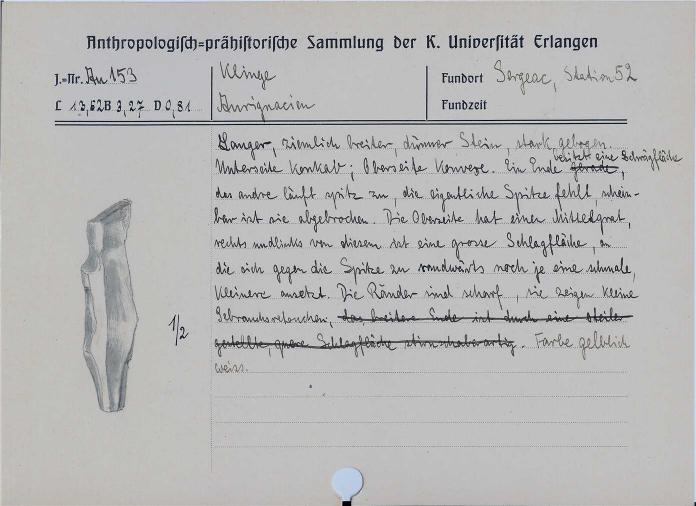 Anthropologisch=prähistorische Sammlung der K. Universität Erlangen
J.=Nr. Au 153
Klinge
Fundort Sergeac, Station 52
L 13,62 B 3,27 D 0,81
Aurignacien
Fundzeit
Langer, ziemlich breiter, dünner Stein, stark gebogen.
besitzt eine Schrägfläche
Unterseite Konkab; Oberseite Konvexe. Ein Ende gerade,
das andre läuft spitz zu, die eigentliche Spitze fehlt, schein-
bar ist sie abgebrochen. Die Oberseite hat einen Mittelgrat,
rechts und links von diesem ist eine grosse Schlagfläche, an
die sich gegen die Spitze zu randwärts noch je eine schmale,
kleinere ansetzt. Die Ränder sind scharf, sie zeigen kleine
Gebrauchsretouchen, das breitere Ende ist durch eine steiler
gestellte, quere Schlagfläche stirnschaberartig. Farbe gelblich
weiss.
1/2